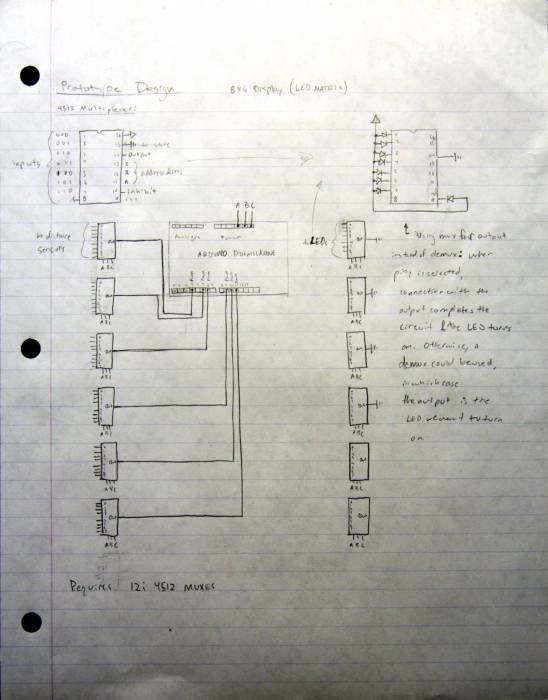 Prototype Design
8x6 Display (LED MATRIX)
4512 Multiplexer:
000
001
010
inputs
110
output
Addressing
inhibit
A B C
to distance
sensors
Analogue
Power
ARDUINO DUEMILANOVE
ABC
ABC
ABC
ABC
ABC
ABC
LEDs
ABC
ABC
ABC
ABC
ABC
ABC
Using mux for output
instead of demux: when
pin is selected,
connection with the
output completes the
circuit & the LED turns
on. Otherwise, a
demux could be used,
in which case
the output is the
LED we want to turn
on
Requires 12; 4512 MUXES